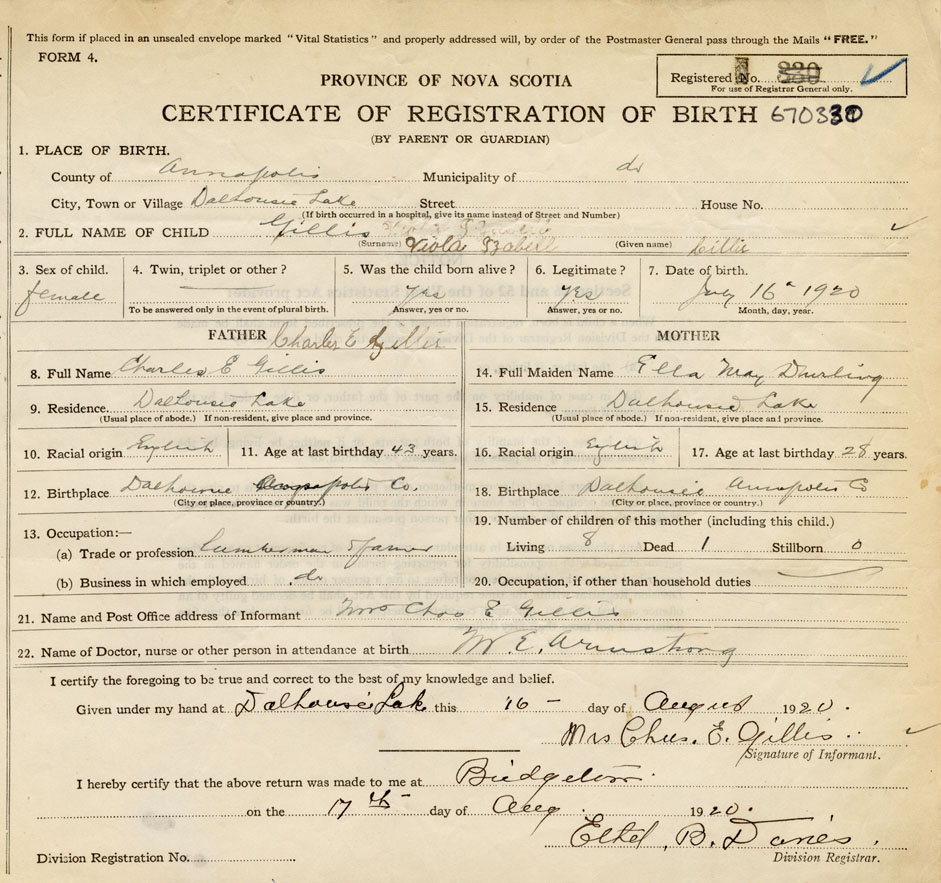 This form if placed in an unsealed envelope marked "Vital Statistics" and properly addressed will, by order of the Postmaster General pass through the Mails "FREE."
FORM 4.
Registered No. 330
For use of Registrar General only.
PROVINCE OF NOVA SCOTIA
CERTIFICATE OF REGISTRATION OF BIRTH 670330
(BY PARENT OR GUARDIAN)
1. PLACE OF BIRTH.
County of Annapolis Municipality of do
City, Town or Village Dalhousie Lake Street House No.
(If birth occurred in a hospital, give its name instead of Street and Number)
2. FULL NAME OF CHILD Gillis
(Surname) Viola Izabell (Given name) Gillis
3. Sex of child. 4. Twin, triplet or other? 5. Was the child born alive? 6. Legitimate? 7. Date of birth.
female Yes Yes July 16 1920
To be answered only in the event of plural birth. Answer, yes or no. Answer, yes or no. Month, day, year.
FATHER Charles E Gillis MOTHER
8. Full Name Charles E Gillis 14. Full Maiden Name Ella May Durling
9. Residence. Dalhousie Lake 15. Residence Dalhousie Lake
(Usual place of abode.) If non-resident, give place and province. (Usual place of abode.) If non-resident, give place and province.
10. Racial origin English 11. Age at last birthday 43 years. 16. Racial origin English 17. Age at last birthday 28 years.
12. Birthplace Dalhousie Annapolis Co. 18. Birthplace Dalhousie Annapolis Co
(City or place, province or country.) (City or place, province or country.)
13. Occupation:— 19. Number of children of this mother (including this child.)
(a) Trade or profession Lumberman & farmer Living 8 Dead 1 Stillborn 0
(b) Business in which employed do 20. Occupation, if other than household duties
21. Name and Post Office address of Informant Mrs Chas E Gillis
22. Name of Doctor, nurse or other person in attendance at birth M. E. Armstrong
I certify the foregoing to be true and correct to the best of my knowledge and belief.
Given under my hand at Dalhousie Lake this 16 – day of August 1920.
Mrs Chas. E. Gillis
Signature of Informant.
I hereby certify that the above return was made to me at Bridgetown
on the 17th day of Aug 1920.
Ethel B. Davies
Division Registrar.
Division Registration No.